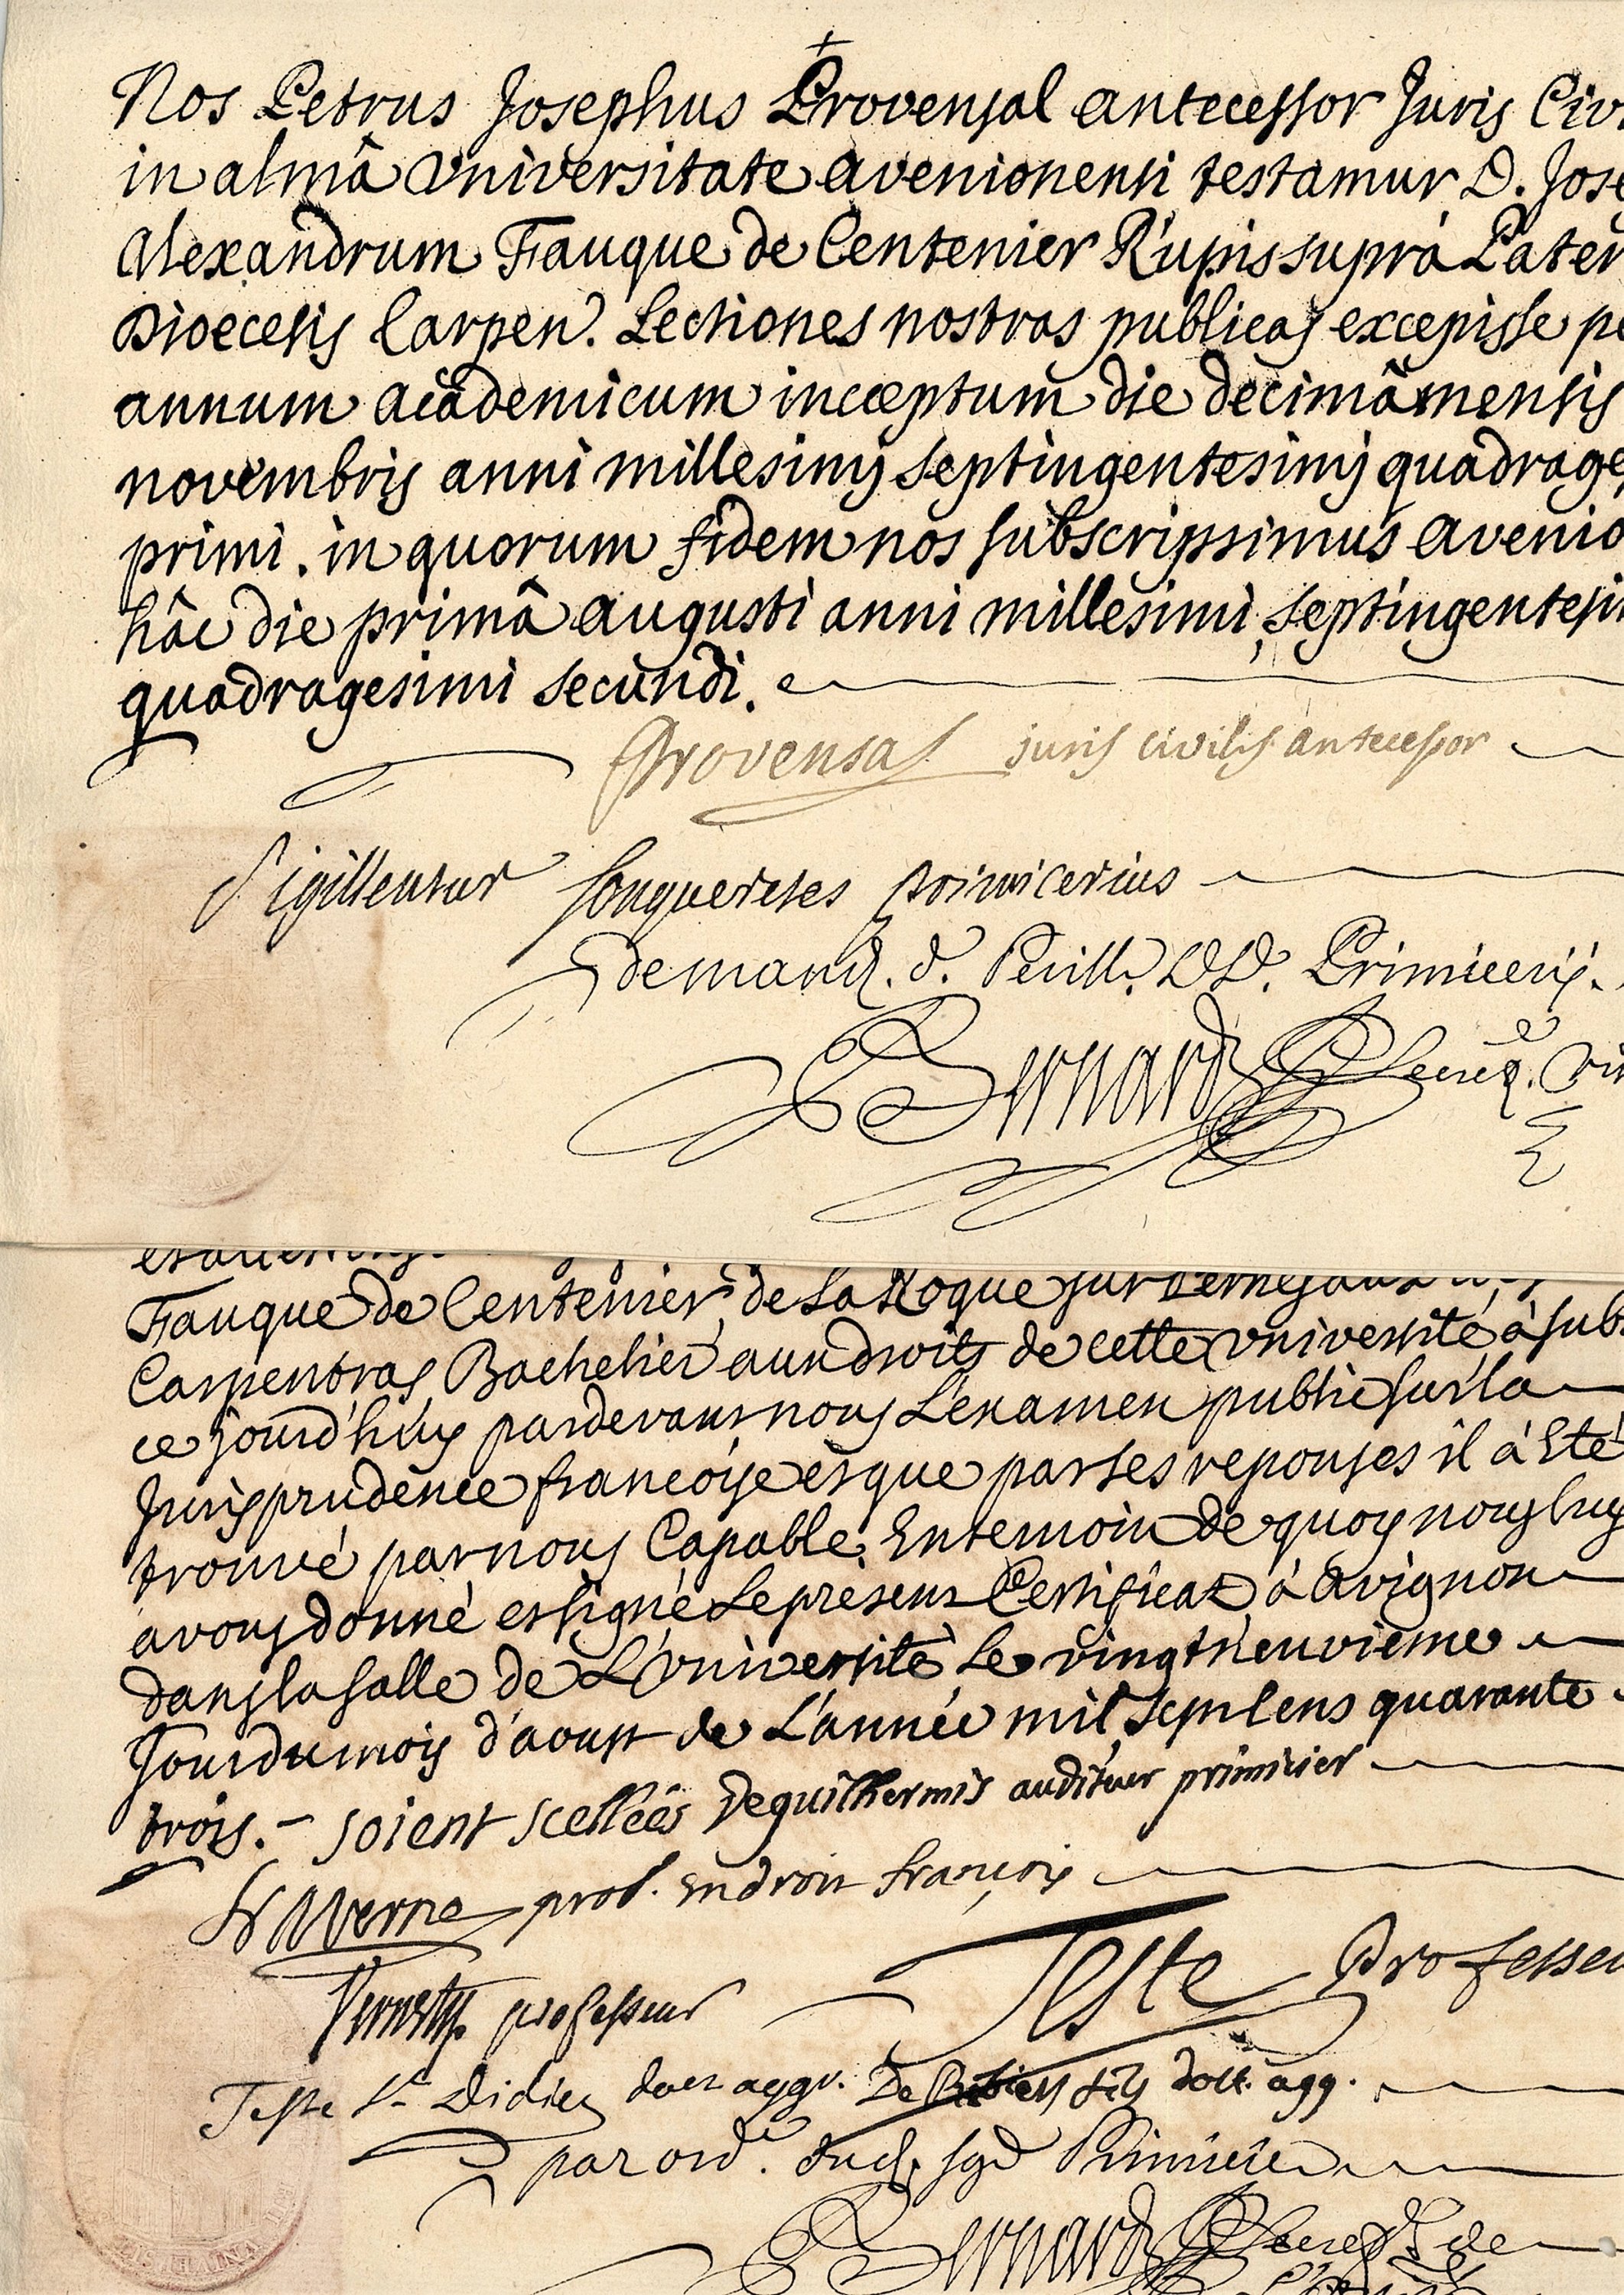 Nos Petrus Josephus Provensal antecessor Juris Civ
in almâ Universitate avenionensi testamur D. Jose
Alexandrum Fauque de Centenier Rupis supra Pater
Dioecesis Carpen. Lectiones nostras publicas excepisse pe
annum academicum incæptum die decimâ mensis
novembris anni millesimj septingentesimj quadrage
primi. in quorum fidem nos subscripsimus avenio
hâc die primâ augusti anni millesimi septingentesim
quadragesimi secundi.
Provensal juris civilis antecessor
Sigillentur primicerius
de mand. d. DD. Primicerij.
Bernard
Fauque de Centenier de la Roque sur
Carpentras Bachelier aux droits de cette université à sub
ce jourd'huy pardevant nous L'examen public sur la
Jurisprudence francoise et que par ses reponses il à Eté
trouvé par nous Capable. En temoin de quoy nous luy
avons donné et signé Le present Certificat à avignon
dans la salle de L'université le vingt neuvieme
Jour du mois d'aoust de L'année mil sept cens quarante
trois. - soient scellées Deguilhermis auditeur primicier
prof. en droit françois
professeur Teste Professeu
Teste St Didier doct aggr. fils doct. agg.
par ord. dud. sgr Primicier
Bernard